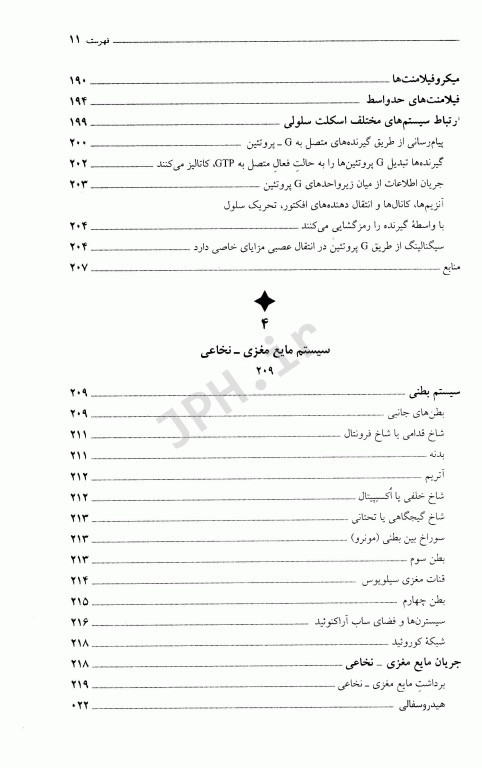 فهرست ۱۱
میکروفیلامنت‌ها ۱۹۰
فیلامنت‌های حدواسط ۱۹۴
ارتباط سیستم‌های مختلف اسکلت سلولی ۱۹۹
پیام‌رسانی از طریق گیرنده‌های متصل به G ـ پروتئین ۲۰۰
گیرنده‌ها تبدیل G پروتئین‌ها را به حالتِ فعالِ متصل به GTP، کاتالیز می‌کنند ۲۰۲
جریان اطلاعات از میان زیرواحدهای G پروتئین ۲۰۳
آنزیم‌ها، کانال‌ها و انتقال دهنده‌های افکتور، تحریک سلول
با واسطهٔ گیرنده را رمزگشایی می‌کنند ۲۰۴
سیگنالینگ از طریق G پروتئین در انتقال عصبی مزایای خاصی دارد ۲۰۴
منابع ۲۰۷
۴
سیستم مایع مغزی ـ نخاعی
۲۰۹
سیستم بطنی ۲۰۹
بطن‌های جانبی ۲۰۹
شاخ قدامی یا شاخ فرونتال ۲۱۱
بدنه ۲۱۱
آتریم ۲۱۲
شاخ خلفی یا اُکسیپیتال ۲۱۲
شاخ گیجگاهی یا تحتانی ۲۱۳
سوراخ بین بطنی (مونرو) ۲۱۳
بطن سوم ۲۱۳
قنات مغزی سیلویوس ۲۱۴
بطن چهارم ۲۱۵
سیسترن‌ها و فضای ساب آراکنوئید ۲۱۶
شبکهٔ کوروئید ۲۱۸
جریان مایع مغزی ـ نخاعی ۲۱۸
برداشتِ مایع مغزی ـ نخاعی ۲۱۹
هیدروسفالی ۰۲۲
JPH.ir